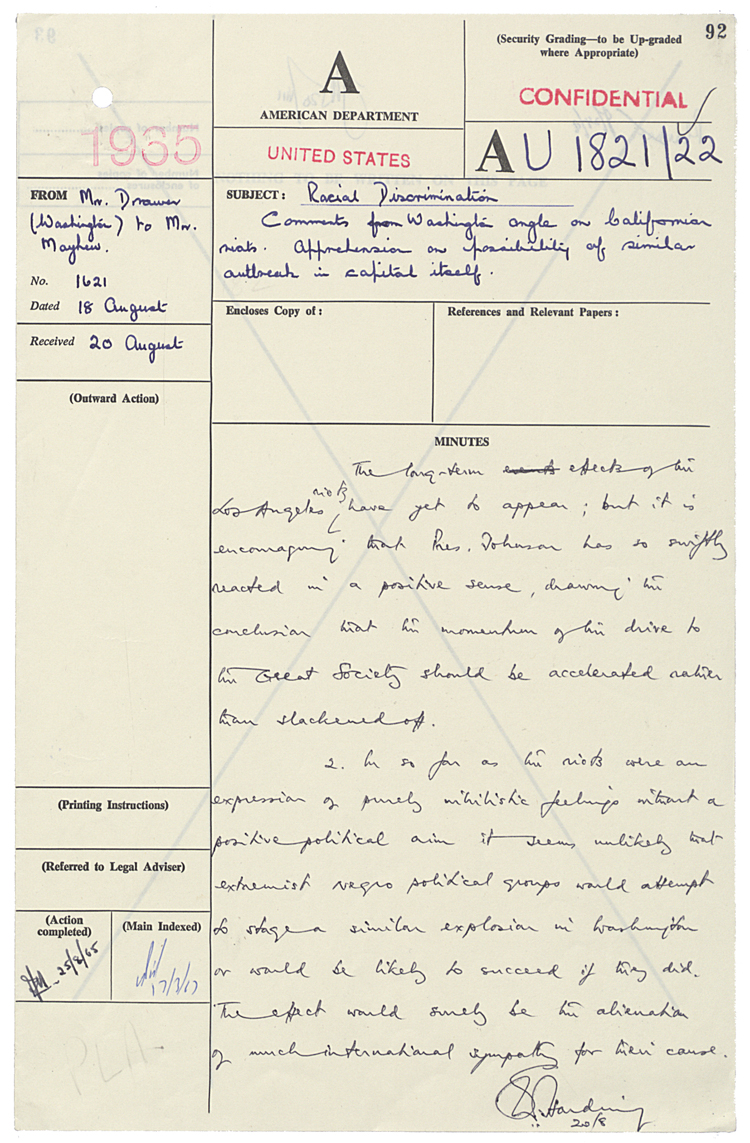 92
(Security Grading—to be Up-graded
where Appropriate)
CONFIDENTIAL
A
AMERICAN DEPARTMENT
UNITED STATES
1965
AU 1821/22
FROM Mr.
(Washington) to Mr.
Mayhew.
No. 1621
Dated 18 August
Received 20 August
SUBJECT: Racial Discrimination
Comments from Washington angle on Californian
riots. Apprehension on possibility of similar
outbreak in capital itself.
Encloses Copy of:
References and Relevant Papers:
(Outward Action)
(Printing Instructions)
(Referred to Legal Adviser)
(Action
completed)
25/8/65
(Main Indexed)
MINUTES
The long-term events effects of the
Los Angeles riots have yet to appear; but it is
encouraging that Pres. Johnson has so swiftly
reacted in a positive sense, drawing the
conclusion that the momentum of his drive to
the Great Society should be accelerated rather
than slackened off.
2. In so far as the riots were an
expression of purely nihilistic feelings without a
positive political aim it seems unlikely that
extremist negro political groups would attempt
to stage a similar explosion in Washington
or would be likely to succeed if they did.
The effect would surely be the alienation
of much international sympathy for their cause.
Harding
20/8